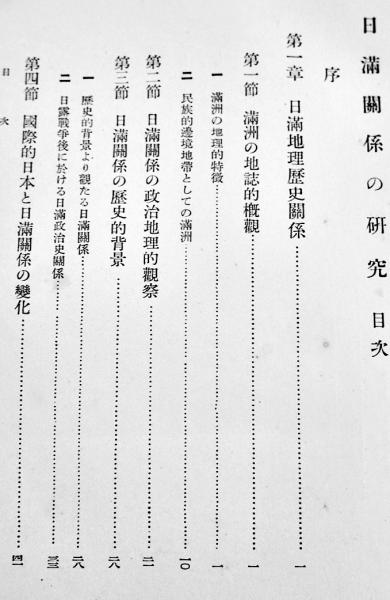 日滿關係の研究 目次
序
第一章 日滿地理歷史關係……一
第一節 滿洲の地誌的槪觀……一
一 滿洲の地理的特徵……一
二 民族的邊境地帶としての滿洲……一〇
第二節 日滿關係の政治地理的觀察……二一
第三節 日滿關係の歷史的背景……二八
一 歷史的背景より觀たる日滿關係……二八
二 日露戰爭後に於ける日滿政治史關係……三三
第四節 國際的日本と日滿關係の變化……四一
目次